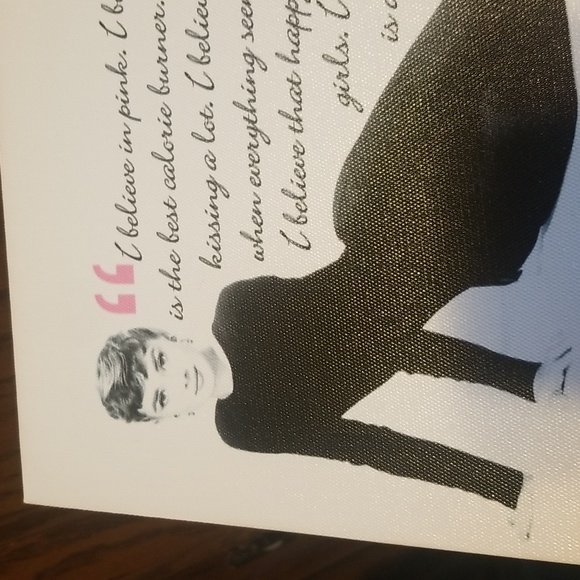 “I believe in pink. I
is the best calorie burner.
kissing a lot. I
when everything
I believe that
girls. I
is